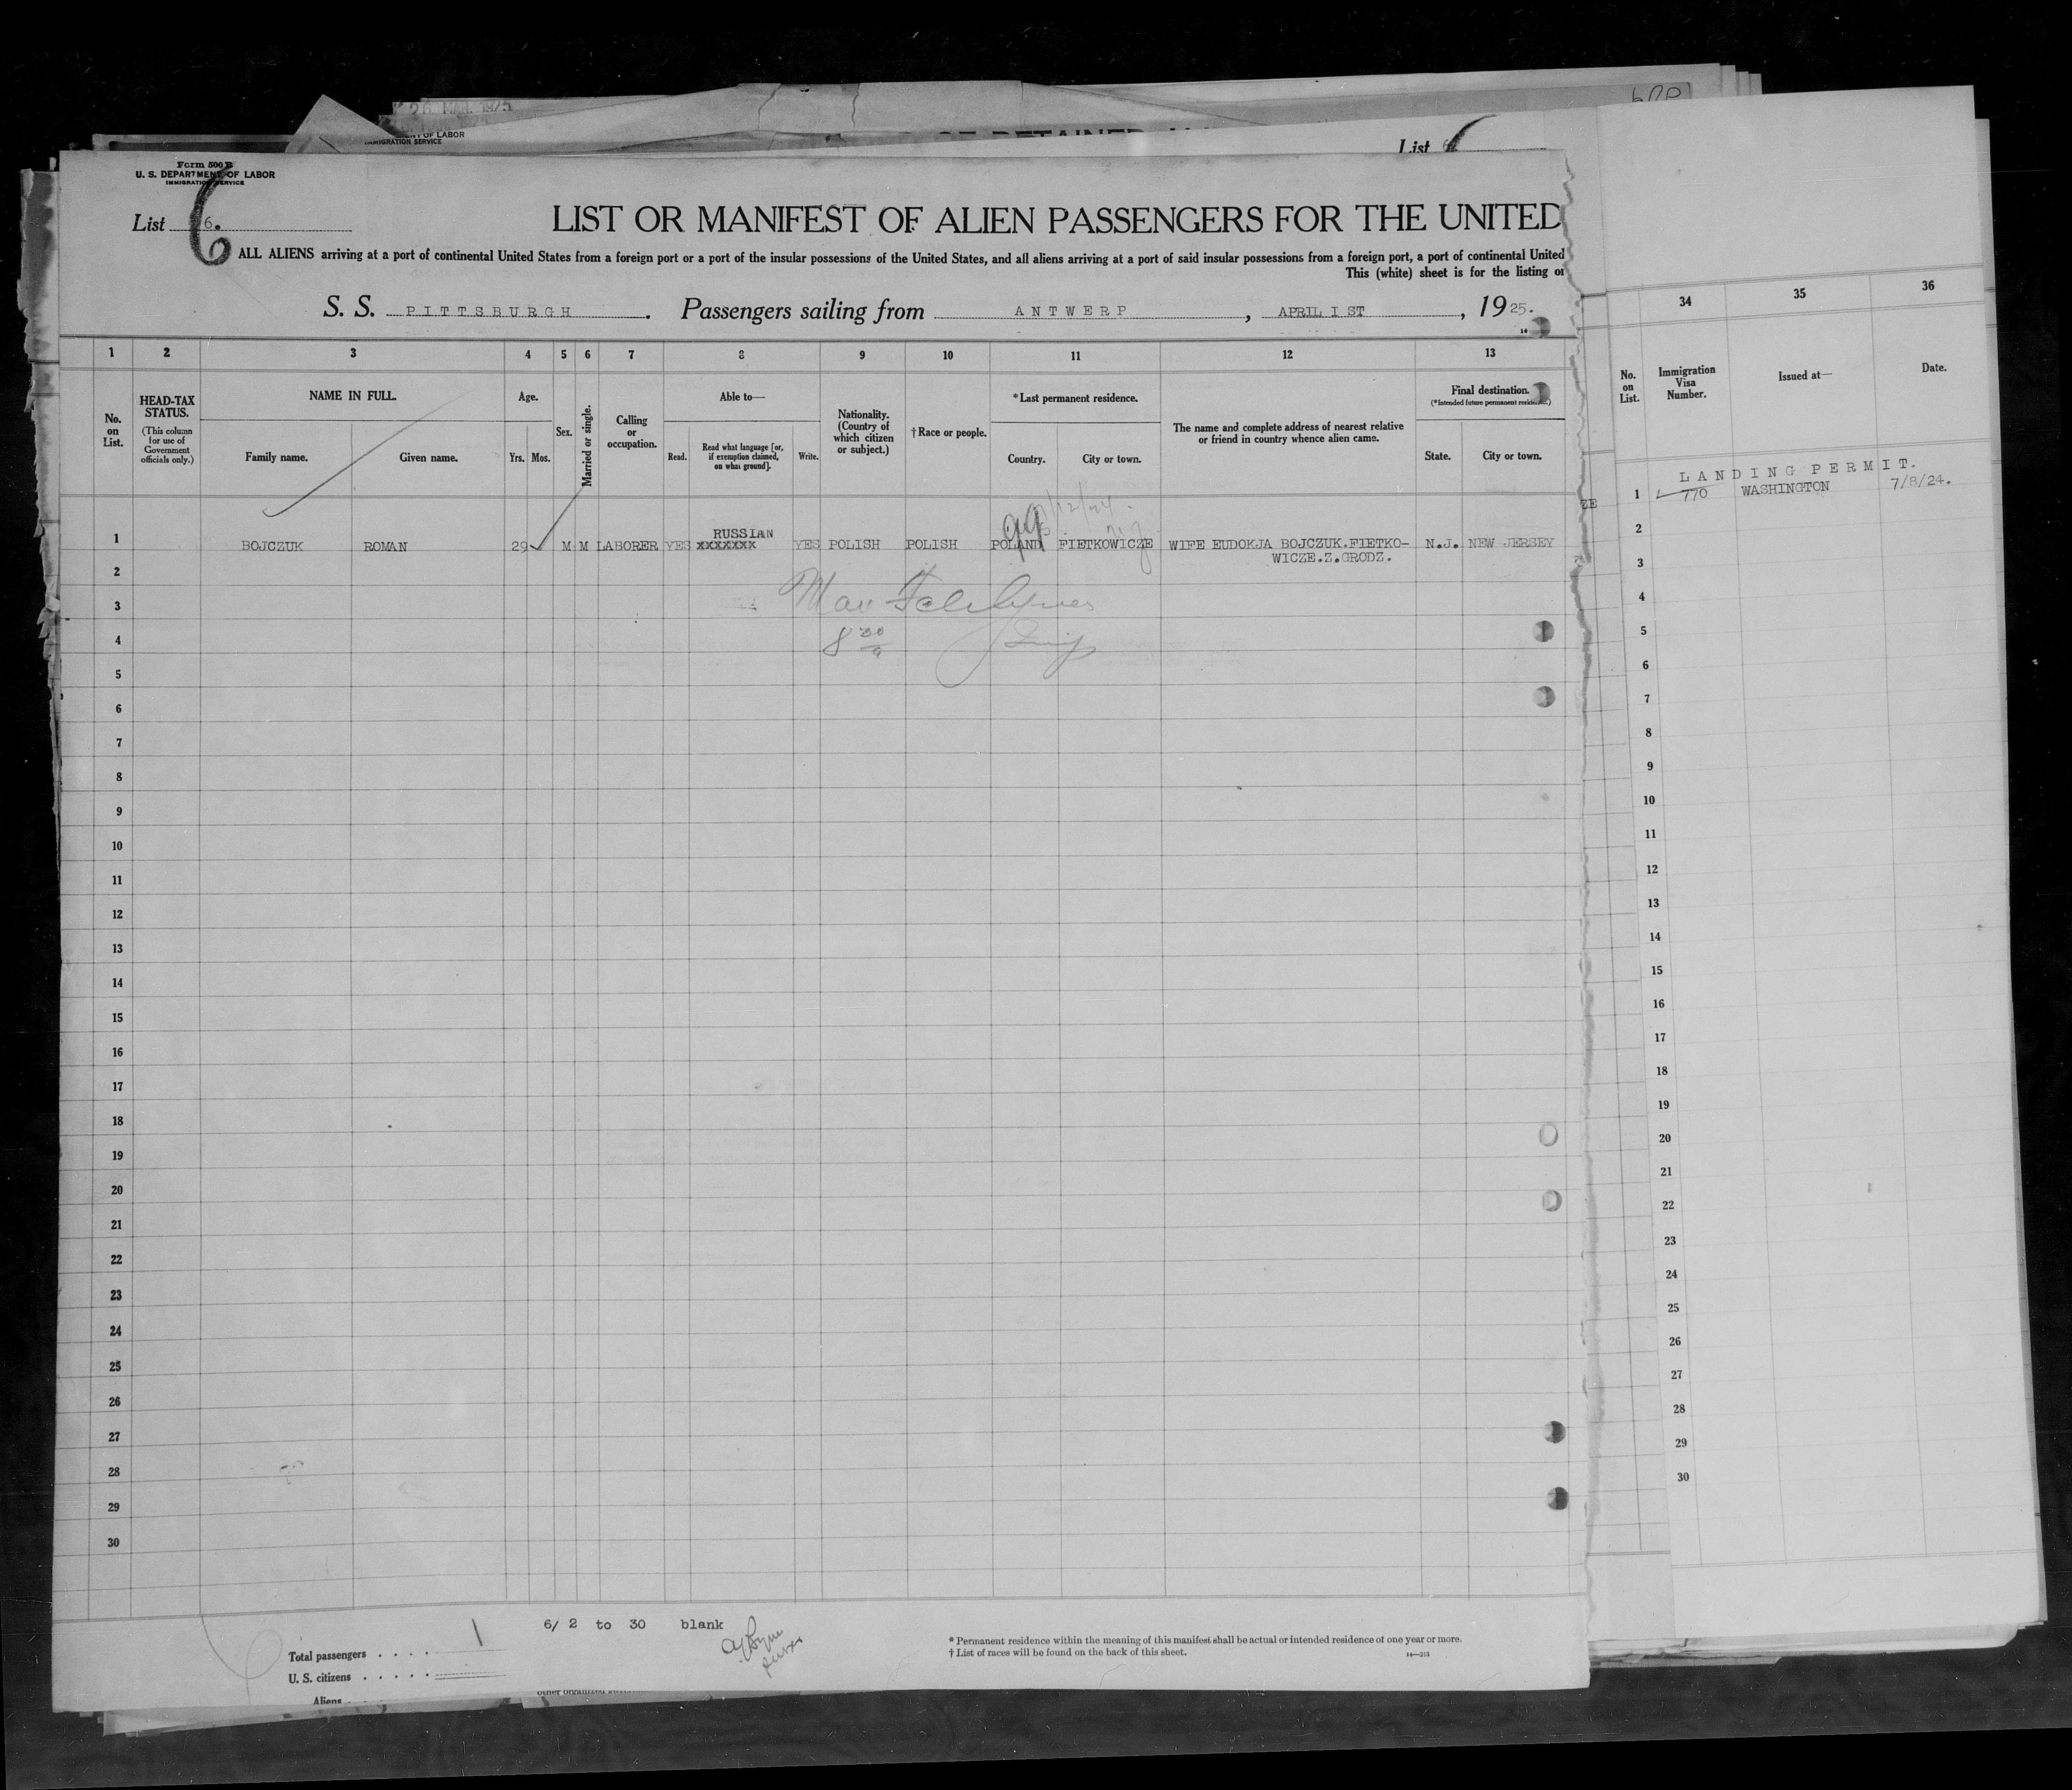 26 MAR. 1925
OF LABOR
IMMIGRATION SERVICE
List 6
Form 500 B
U. S. DEPARTMENT OF LABOR
IMMIGRATION SERVICE
List 6.
LIST OR MANIFEST OF ALIEN PASSENGERS FOR THE UNITED
ALL ALIENS arriving at a port of continental United States from a foreign port or a port of the insular possessions of the United States, and all aliens arriving at a port of said insular possessions from a foreign port, a port of continental United
This (white) sheet is for the listing of
S. S. PITTSBURGH. Passengers sailing from ANTWERP, APRIL I ST, 1925.
1 2 3 4 5 6 7 8 9 10 11 12 13
No. on List.
HEAD-TAX STATUS.
(This column for use of Government officials only.)
NAME IN FULL.
Family name. Given name.
Age.
Yrs. Mos.
Sex.
Married or single.
Calling or occupation.
Able to—
Read. Read what language [or, if exemption claimed, on what ground]. Write.
Nationality. (Country of which citizen or subject.)
†Race or people.
*Last permanent residence.
Country. City or town.
The name and complete address of nearest relative or friend in country whence alien came.
Final destination.
(*Intended future permanent residence.)
State. City or town.
RUSSIAN
1 BOJCZUK ROMAN 29 M M LABORER YES XXXXXXX YES POLISH POLISH POLAND FIETKOWICZE WIFE EUDOKJA BOJCZUK.FIETKO- N.J. NEW JERSEY
WICZE.Z.GRODZ.
2
3
4
5
6
7
8
9
10
11
12
13
14
15
16
17
18
19
20
21
22
23
24
25
26
27
28
29
30
6/ 2 to 30 blank
Total passengers . . . . 1
U. S. citizens . . . . .
Aliens
* Permanent residence within the meaning of this manifest shall be actual or intended residence of one year or more.
† List of races will be found on the back of this sheet.
14—213
34 35 36
No. on List.
Immigration Visa Number.
Issued at—
Date.
LANDING PERMIT.
ZE
1 770 WASHINGTON 7/8/24.
2
3
4
5
6
7
8
9
10
11
12
13
14
15
16
17
18
19
20
21
22
23
24
25
26
27
28
29
30